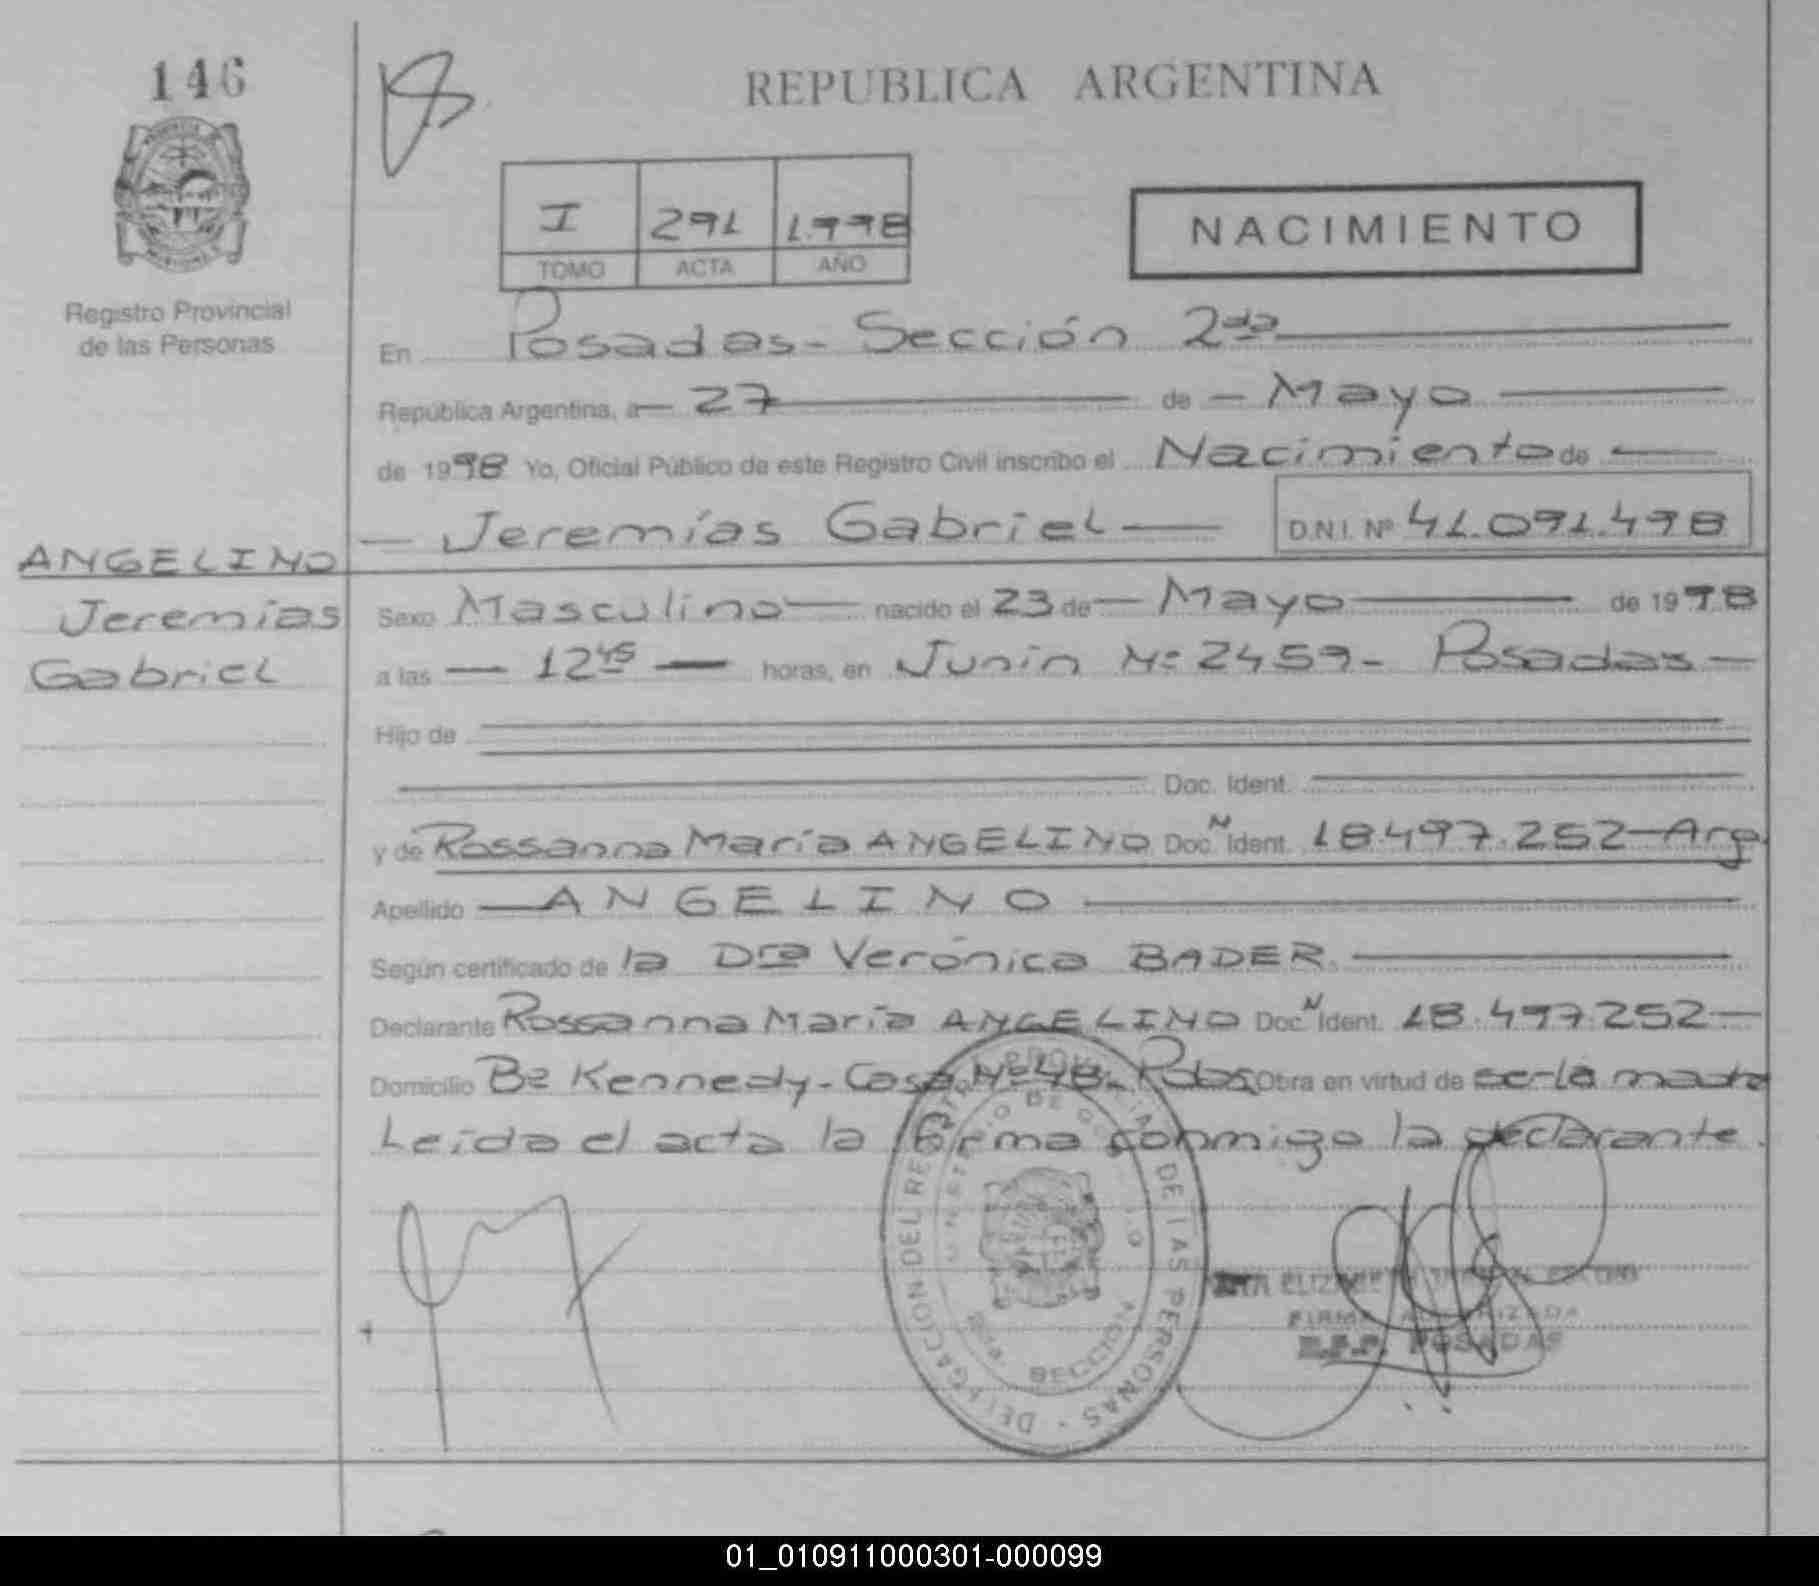 146
REPUBLICA ARGENTINA
I 291 1.998
TOMO ACTA AÑO
NACIMIENTO
Registro Provincial
de las Personas
En Posadas- Sección 2da
República Argentina, a 27 de Mayo
de 1998 Yo, Oficial Público de este Registro Civil inscribo el Nacimiento de
Jeremías Gabriel D.N.I. Nº 41.091.498
ANGELINO
Jeremías
Gabriel
Sexo Masculino nacido el 23 de Mayo de 1998
a las 12 45 horas, en Junín Nº 2459- Posadas-
Hijo de
Doc. Ident.
y de Rossanna María ANGELINO Doc. N Ident. 18.497.252-Arg.
Apellido ANGELINO
Según certificado de la Dra Verónica BADER.
Declarante Rossanna María ANGELINO Doc N Ident. 18.497.252-
Domicilio Bº Kennedy- Casa Nº 48- Pdas Obra en virtud de ser la madre
Leída el acta la firma conmigo la declarante.
DELEGACION DEL REGISTRO PROVINCIAL DE LAS PERSONAS
MINISTERIO DE GOBIERNO
SECCION
FIRMA AUTORIZADA
POSADAS
01_010911000301-000099